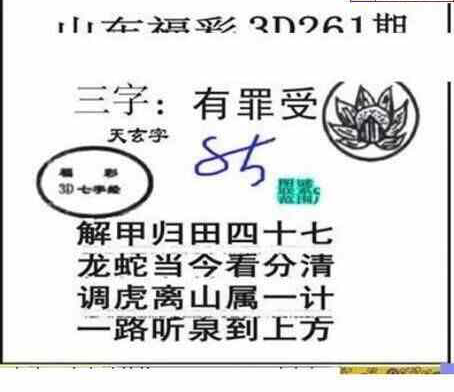 山东福彩3D261期
三字：有罪受
天玄字
85
福 彩
3D七字绘
解甲归田四十七
龙蛇当今看分清
调虎离山属一计
一路听泉到上方